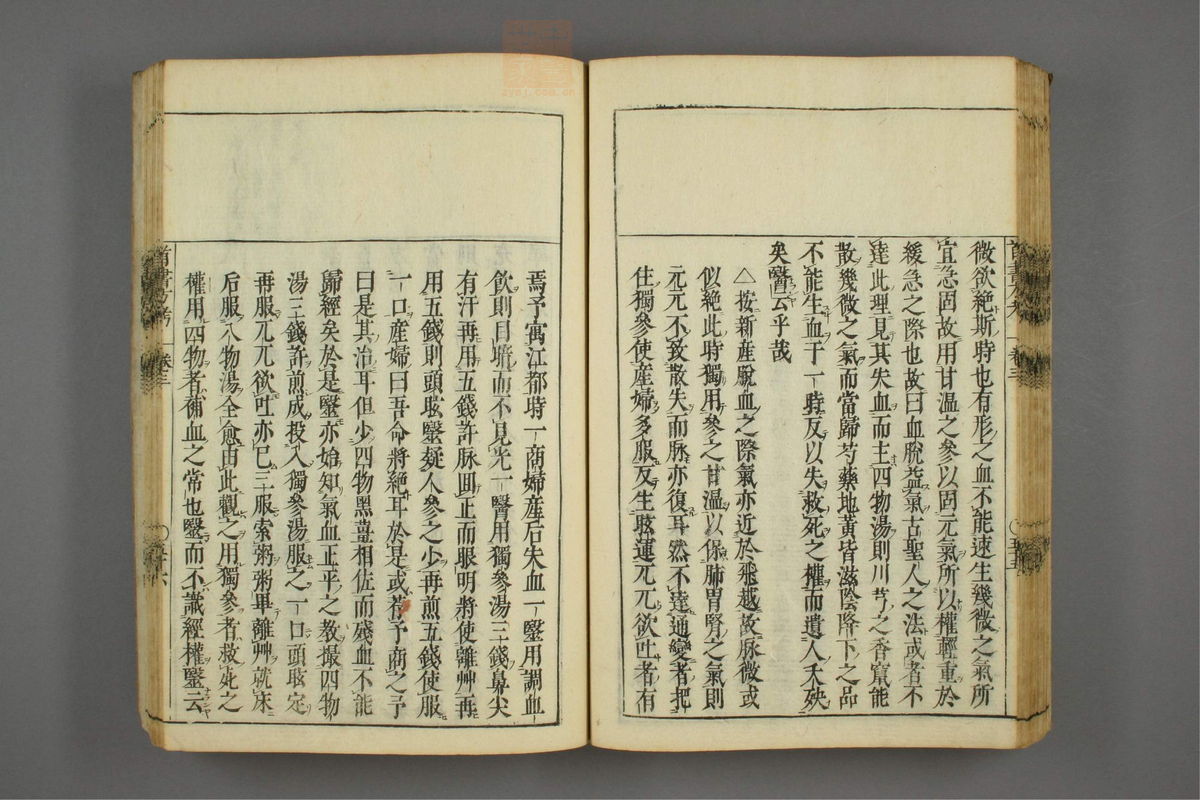 微欲絶斯時也有形之血不能速生幾微之氣所
宜急固故用甘温之參以固元氣所以權輕重於
緩急之際也故曰血脫益氣古聖人之法或者不
達此理見其失血而主四物湯則川芎之香竄能
散幾微之氣而當歸芍藥地黃皆滋陰降下之品
不能生血于一時反以失救死之權而遺人夭殃
矣醫云乎哉
△按新産脫血之際氣亦近於飛越故脉微或
似絶此時獨用參之甘温以保肺胃腎之氣則
元元不致散失而脉亦復耳然不達通變者把
住獨參使産婦多服反生眩運元元欲吐者有
焉予寓江都時一商婦産后失血一醫用調血
飲則目暗而不見光一醫用獨參湯三錢鼻尖
有汗再用五錢許脉囬正而眼明將使離艸再
用五錢則頭眩醫疑人參之少再煎五錢使服
一口産婦曰吾命將絶耳於是或荐予商之予
曰是其治耳但少四物黑薑相佐而殘血不能
歸經矣於是醫亦始知氣血正平之教撮四物
湯三錢許煎成投入獨參湯服之一口頭眩定
再服兀兀欲吐亦巳三服索粥粥畢離艸就床
后服八物湯全愈由此觀之用獨參者救死之
權用四物者補血之常也醫而不識經權醫云
卷三
卷三